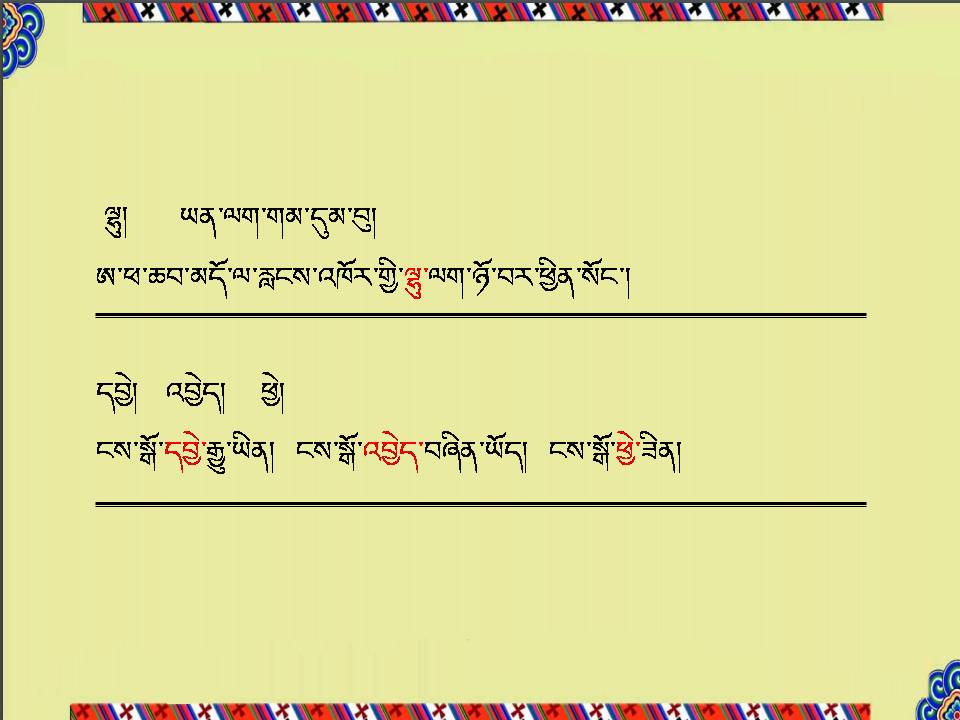 ལྷུ། ཡན་ལག་གམ་དུམ་བུ།
ཨ་ཕ་ཆབ་མདོ་ལ་རླངས་འཁོར་གྱི་ལྷུ་ལག་ཉོ་བར་ཕྱིན་སོང་།
དབྱེ། འབྱེད། ཕྱེ།
ངས་སྒོ་དབྱེ་རྒྱུ་ཡིན། ངས་སྒོ་འབྱེད་བཞིན་ཡོད། ངས་སྒོ་ཕྱེ་ཟིན།